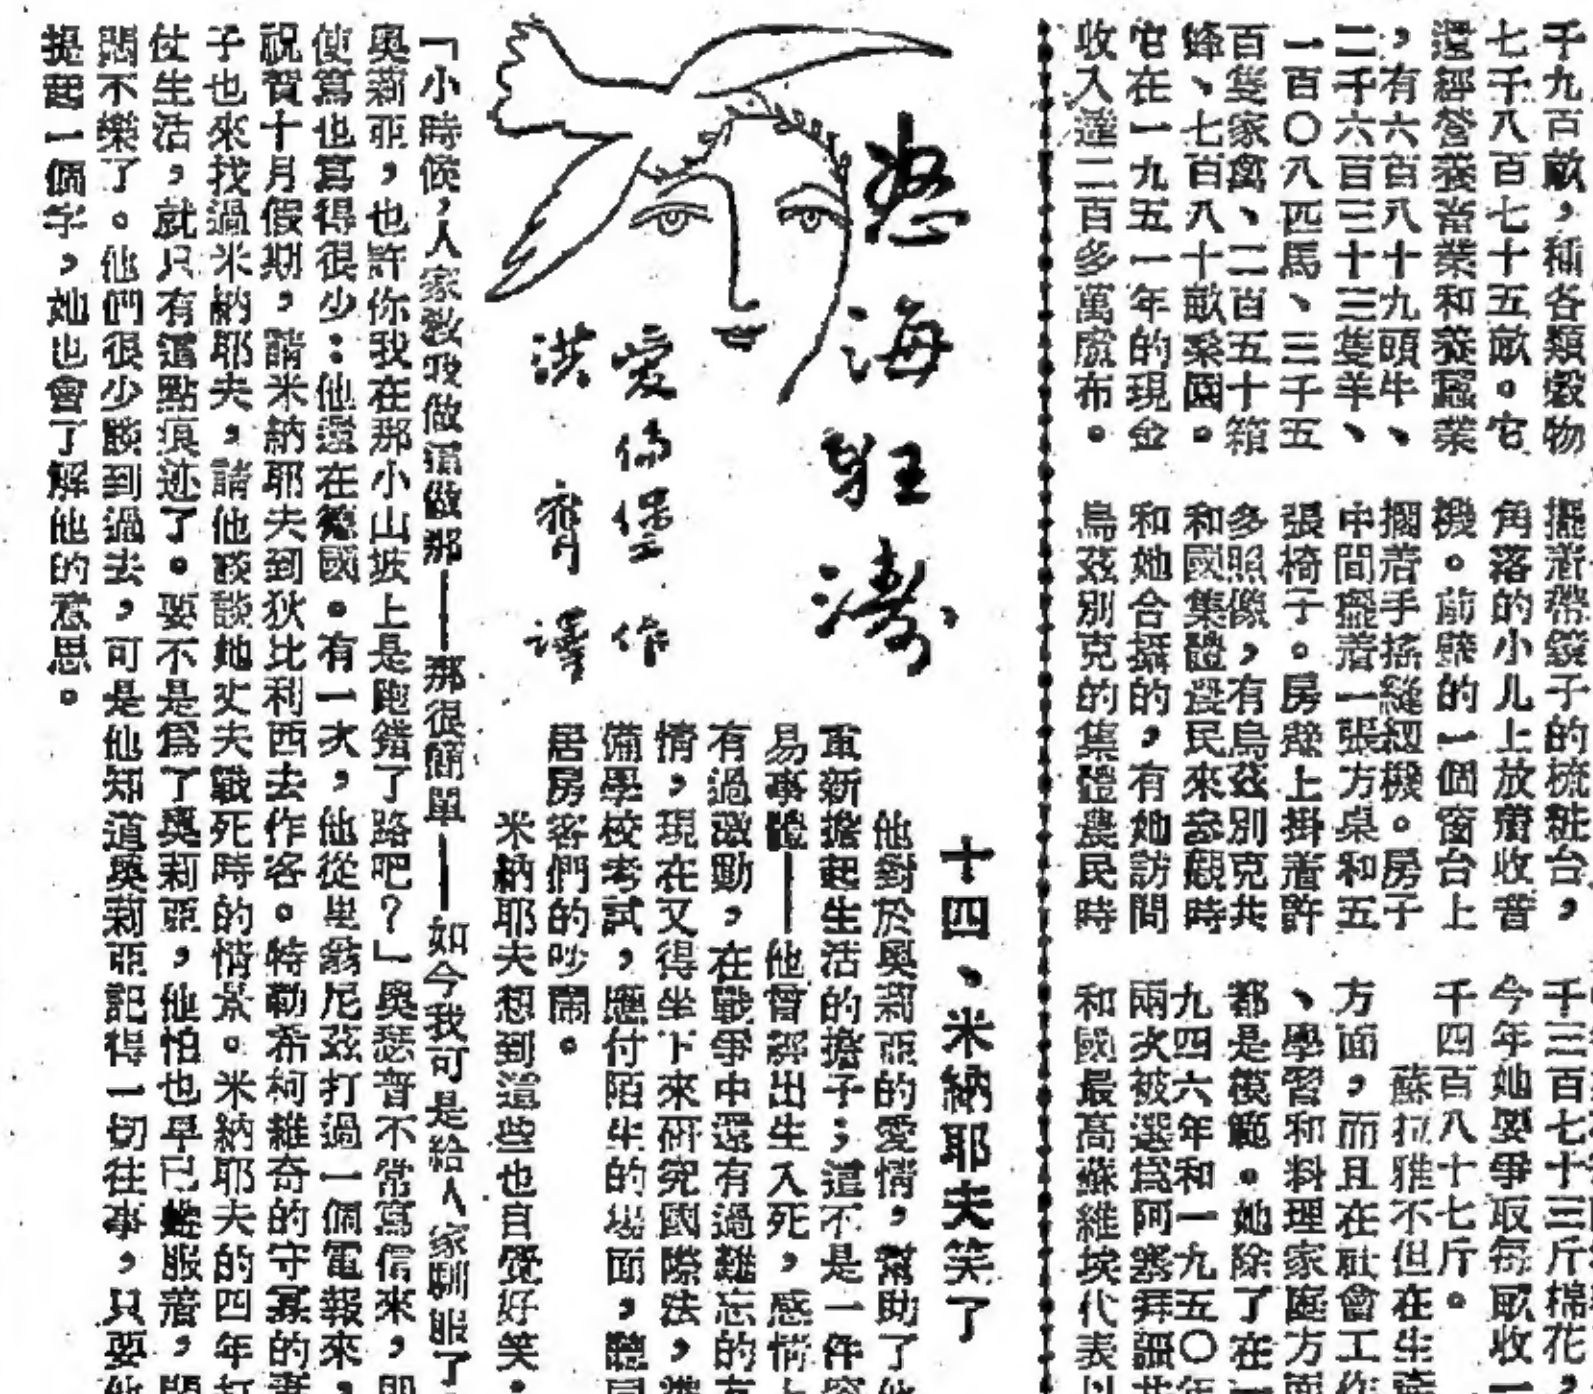 千九百畝，種各類穀物
七千八百七十五畝。它
還經營養畜業和養蠶業
，有六百八十九頭牛、
二千六百三十三隻羊、
一百〇八匹馬、三千五
百隻家禽、二百五十箱
蜂、七百八十畝桑園。
它在一九五一年的現金
收入達二百多萬盧布。
擺着帶鏡子的梳粧台，
角落的小几上放着收音
機。前壁的一個窗台上
擱着手搖縫紉機。房子
中間擺着一張方桌和五
張椅子。房壁上掛着許
多照像，有烏茲別克共
和國集體農民來參觀時
和她合攝的，有她訪問
烏茲別克的集體農民時
千三百七十三斤棉花，
今年她要爭取每畝收一
千四百八十七斤。
蘇拉雅不但在生產
方面，而且在社會工作
、學習和料理家庭方面
都是模範。她除了在一
九四六年和一九五〇年
兩次被選爲阿塞拜疆共
和國最高蘇維埃代表以
怒海狂濤
愛倫堡 作
洪 齊 譯
十四、米納耶夫笑了
他對於奧莉亞的愛情，幫助了他
重新擔起生活的擔子；這不是一件容
易事體——他曾經出生入死，感情上
有過激動，在戰爭中還有過難忘的友
情，現在又得坐下來研究國際法，準
備學校考試，應付陌生的場面，聽同
居房客們的吵鬧。
米納耶夫想到這些也自覺好笑。
「小時候，人家教我做這做那——那很簡單——如今我可是給人家馴服了。
奧莉亞，也許你我在那小山坡上是跑錯了路吧？」奧瑟普不常寫信來，卽
使寫也寫得很少：他還在德國。有一次，他從里翁尼茲打過一個電報來，
祝賀十月假期，請米納耶夫到狄比利西去作客。特勒希柯維奇的守寡的妻
子也來找過米納耶夫，請他談談她丈夫戰死時的情景。米納耶夫的四年打
仗生活，就只有這點痕迹了。要不是爲了奧莉亞，他怕也早已馴服着，悶
悶不樂了。他們很少談到過去，可是他知道奧莉亞記得一切往事，只要他
提起一個字，她也會了解他的意思。